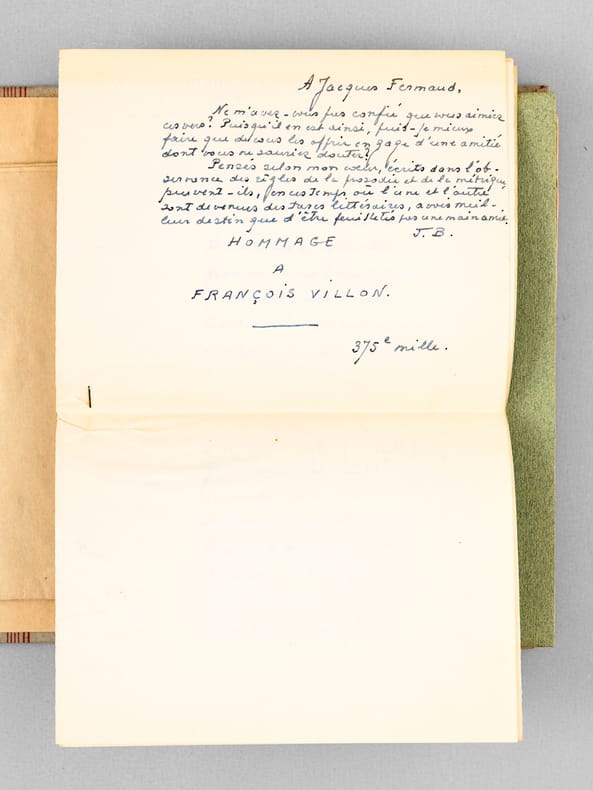 A Jacques Fermaud,
Ne m'avez-vous pas confié que vous aimiez
ces vers? Puisqu'il en est ainsi, puis-je mieux
faire que de vous les offrir en gage d'une amitié
dont vous ne sauriez douter?
Pensés selon mon cœur, écrits dans l'ob-
servance des règles de la prosodie et de la métrique,
peuvent-ils, en ces temps où l'une et l'autre
sont devenues des tares littéraires, avoir meil-
leur destin que d'être feuilletés par une main amie.
J. B.
HOMMAGE
A
FRANÇOIS VILLON.
375e mille.